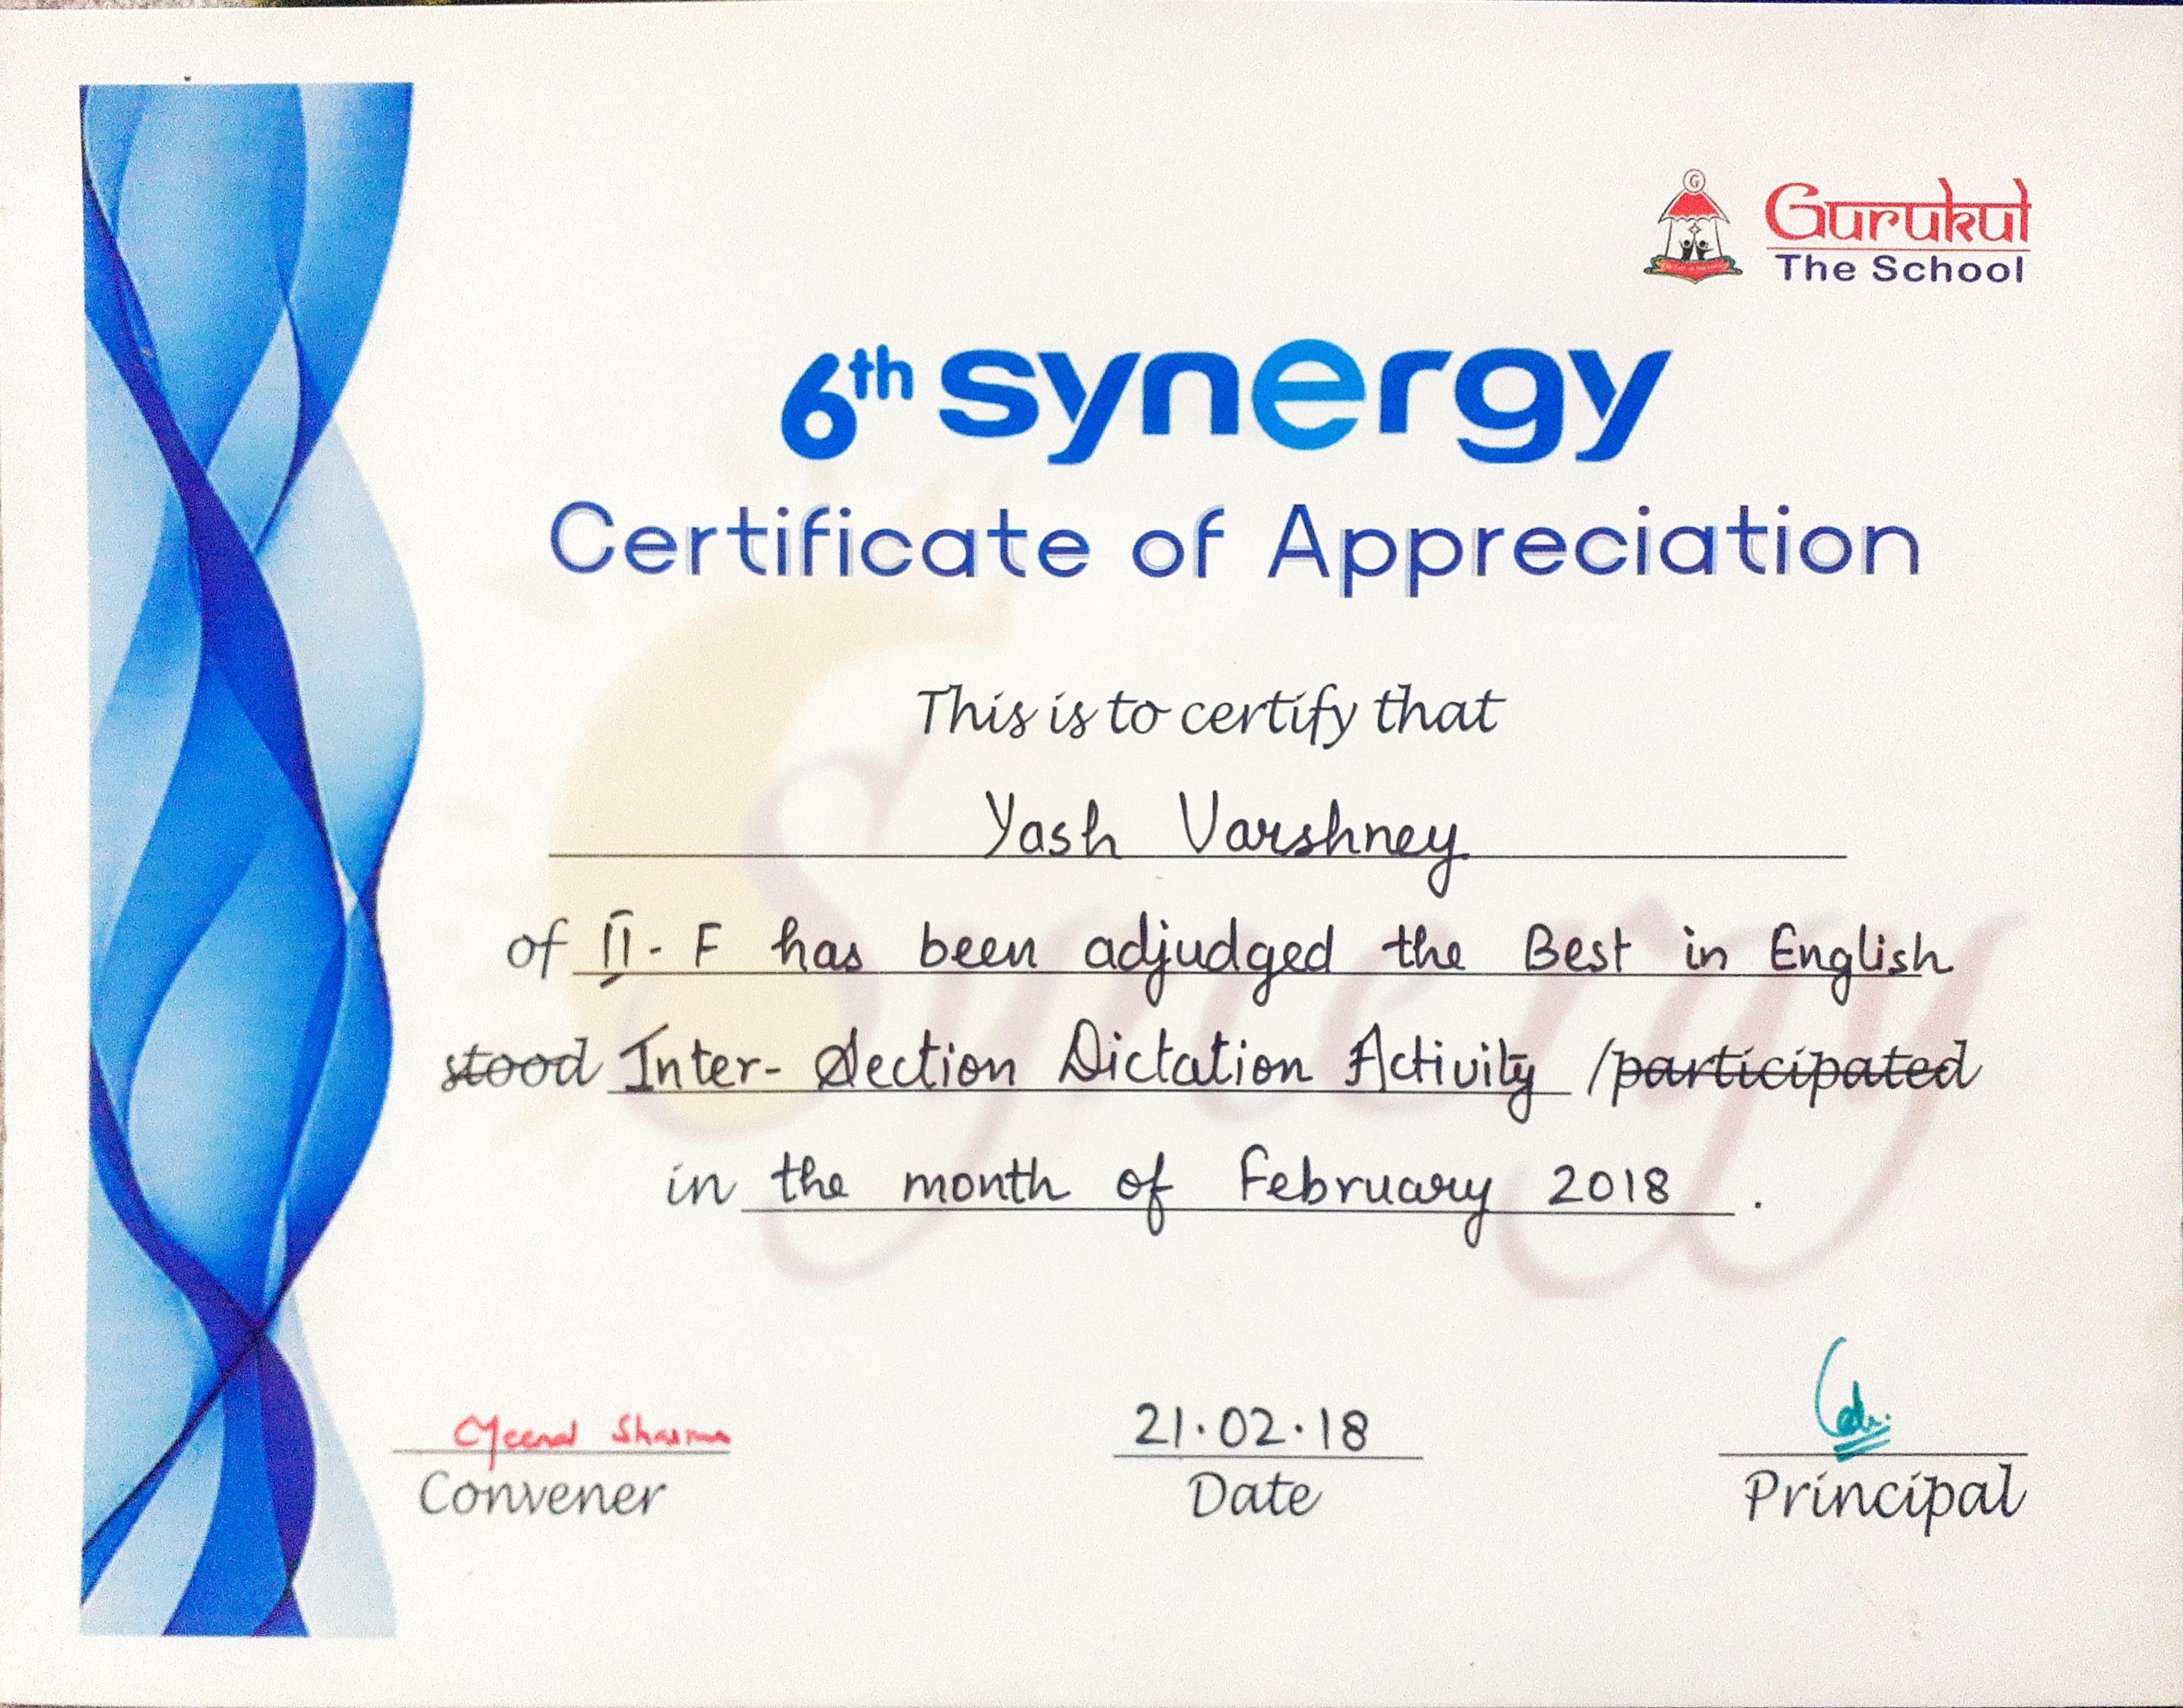 Gurukul
The School
6th synergy
Certificate of Appreciation
This is to certify that
Yash Varshney
of II - F has been adjudged the Best in English
stood Inter- Section Dictation Activity /participated
in the month of February 2018 .
Meenal Sharma
21.02.18
Convener
Date
Principal
Synergy